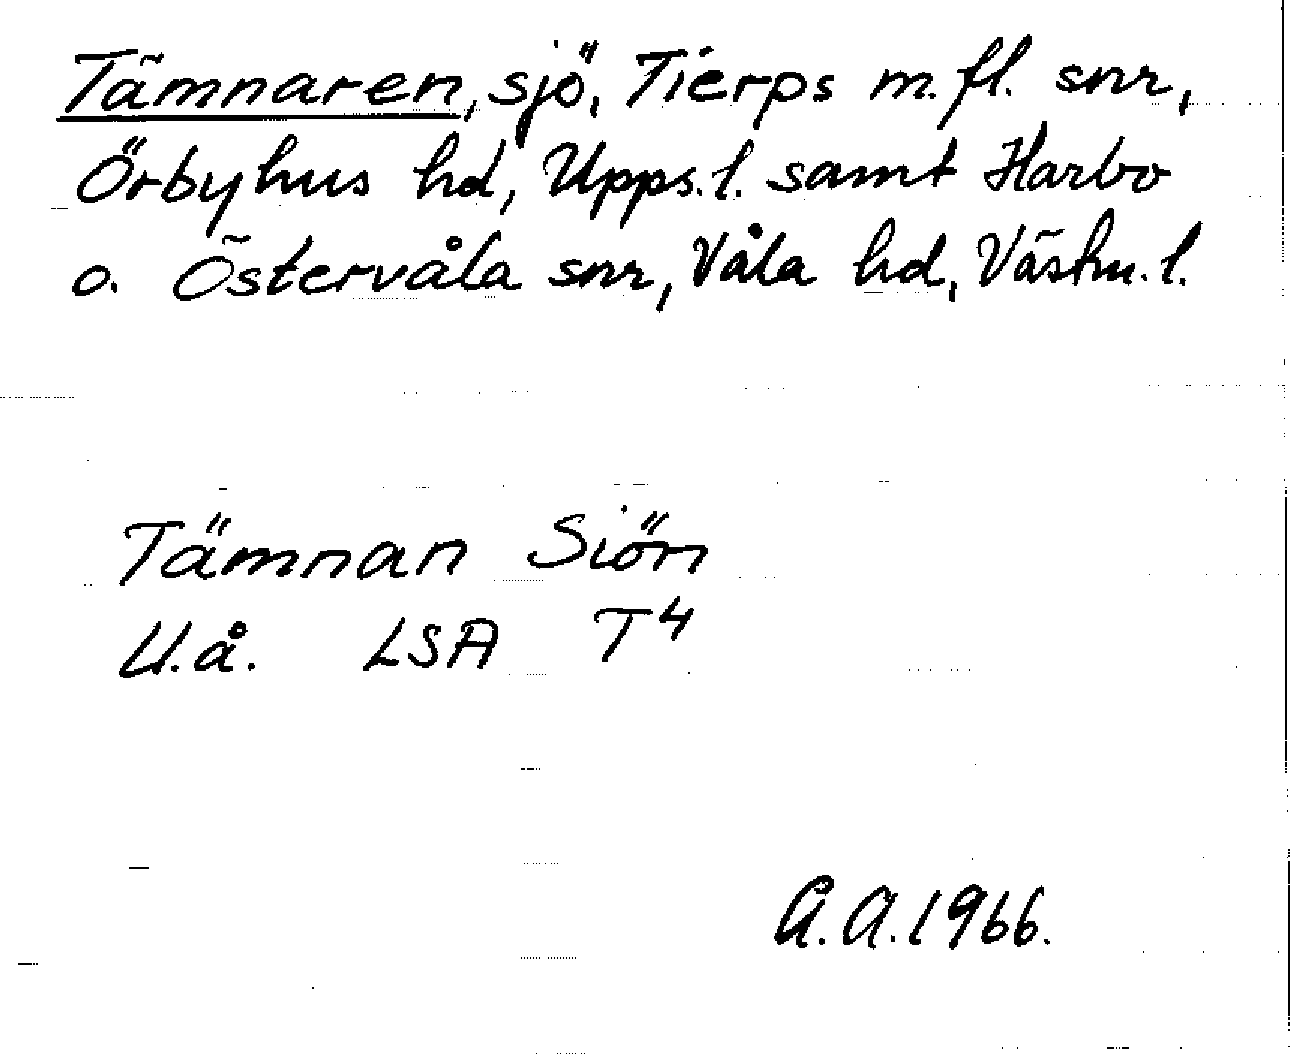 Tämnaren, sjö, Tierps m.fl. snr,
Örbyhus hd, Upps.l. samt Harbo
o. Östervåla snr, Våla hd, Västm.l.
Tämnan Siön
U.å. LSA T4
A.A.1966.